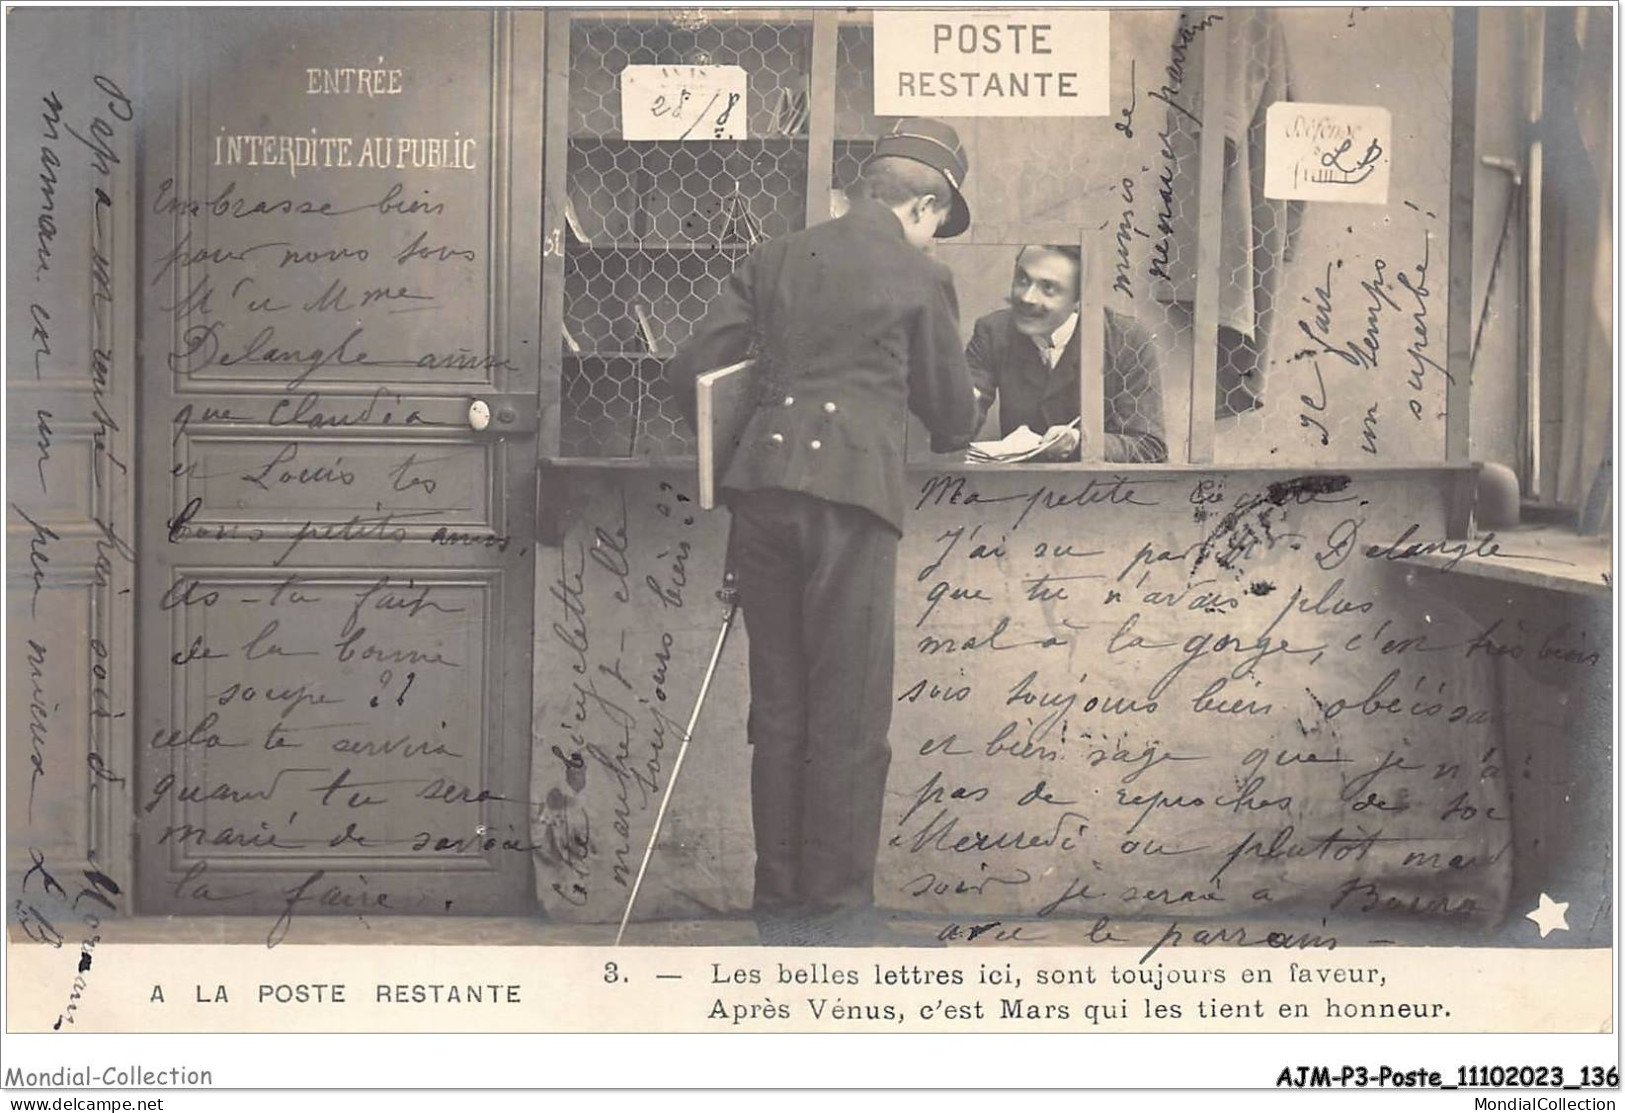 POSTE
RESTANTE
ENTRÉE
INTERDITE AU PUBLIC
AVIS
28/8
Défense
Ma petite
J'ai su par Mr Delangle
que tu n'avais plus
mal à la gorge, c'est très bien
sois toujours bien
et bien sage que je n'ai
pas de reproches de toi
Mercredi ou plutôt mardi
soir je serai à
avec le parrain —
munis de
parrain
Il fait
un temps
superbe!
Cette bicyclette
marche t-elle
toujours bien??
Embrasse bien
pour nous tous
M' et Mme
Delangle ainsi
que Claudia
et Louis tes
bons petits amis.
As-tu fait
de la bonne
soupe??
cela te servira
quand tu sera
marié de savoir
la faire.
Papa m
maman est un peu mieux
A LA POSTE RESTANTE
3. — Les belles lettres ici, sont toujours en faveur,
Après Vénus, c'est Mars qui les tient en honneur.
Mondial-Collection
AJM-P3-Poste_11102023_136
© delcampe.net
MondialCollection